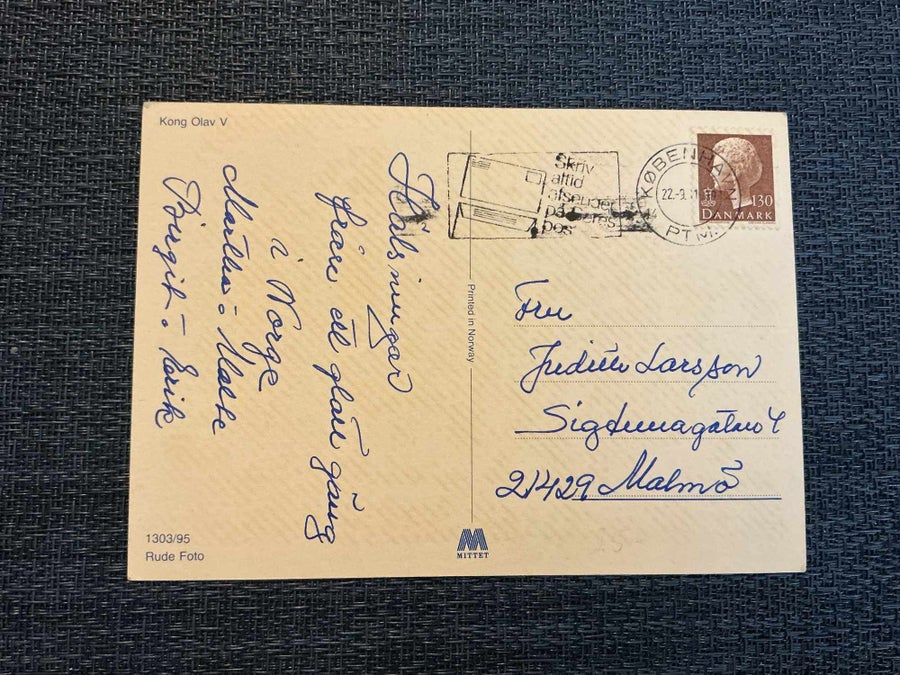 Kong Olav V
Hälsningar
från ett glatt gäng
i Norge
Birgit - Erik
1303/95
Rude Foto
Printed in Norway
MITTET
Skriv
altid
afsender
på Deres
post
KØBENHAVN
22.-9.
PTM.
130
DANMARK
Fru
Judith Larsson
Sigtunagatan 4
21429 Malmö